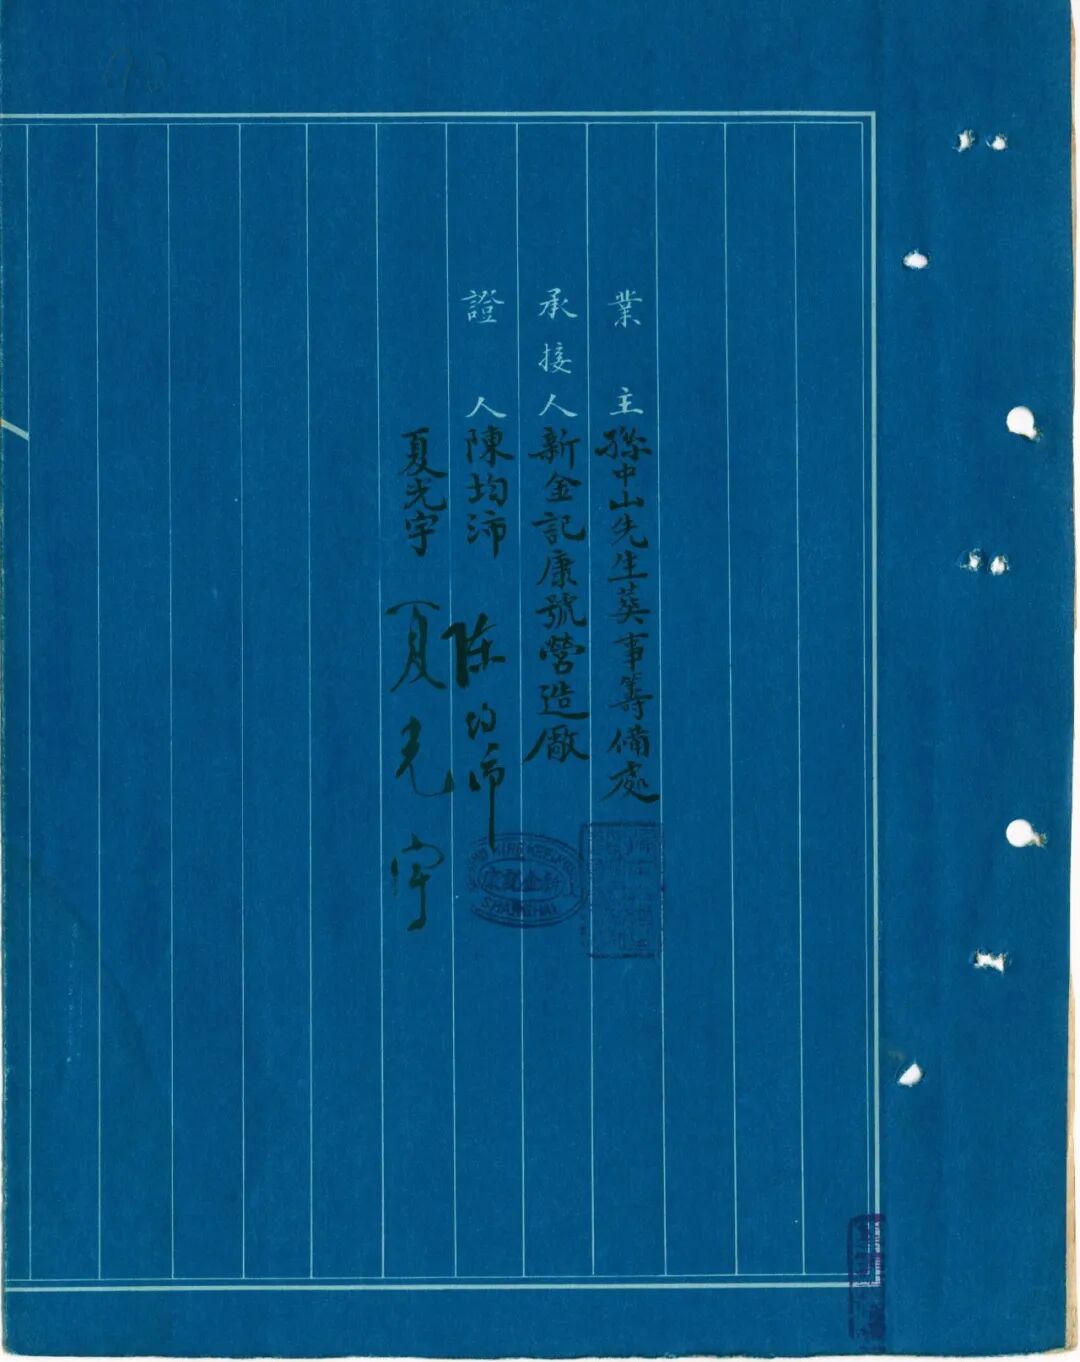 業主孫中山先生葬事籌備處
承接人新金記康號營造廠
證人陳均沛 陈均沛
夏光宇 夏光宇
新金記康
SHANGHAI